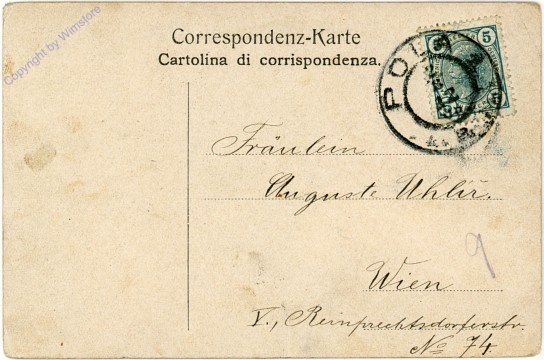 Copyright by Wimstore
Correspondenz-Karte
Cartolina di corrispondenza.
5
POLA
Fräulein
Auguste Uhlír.
9
Wien
V., Reinprechtsdorferstr.
No 74.